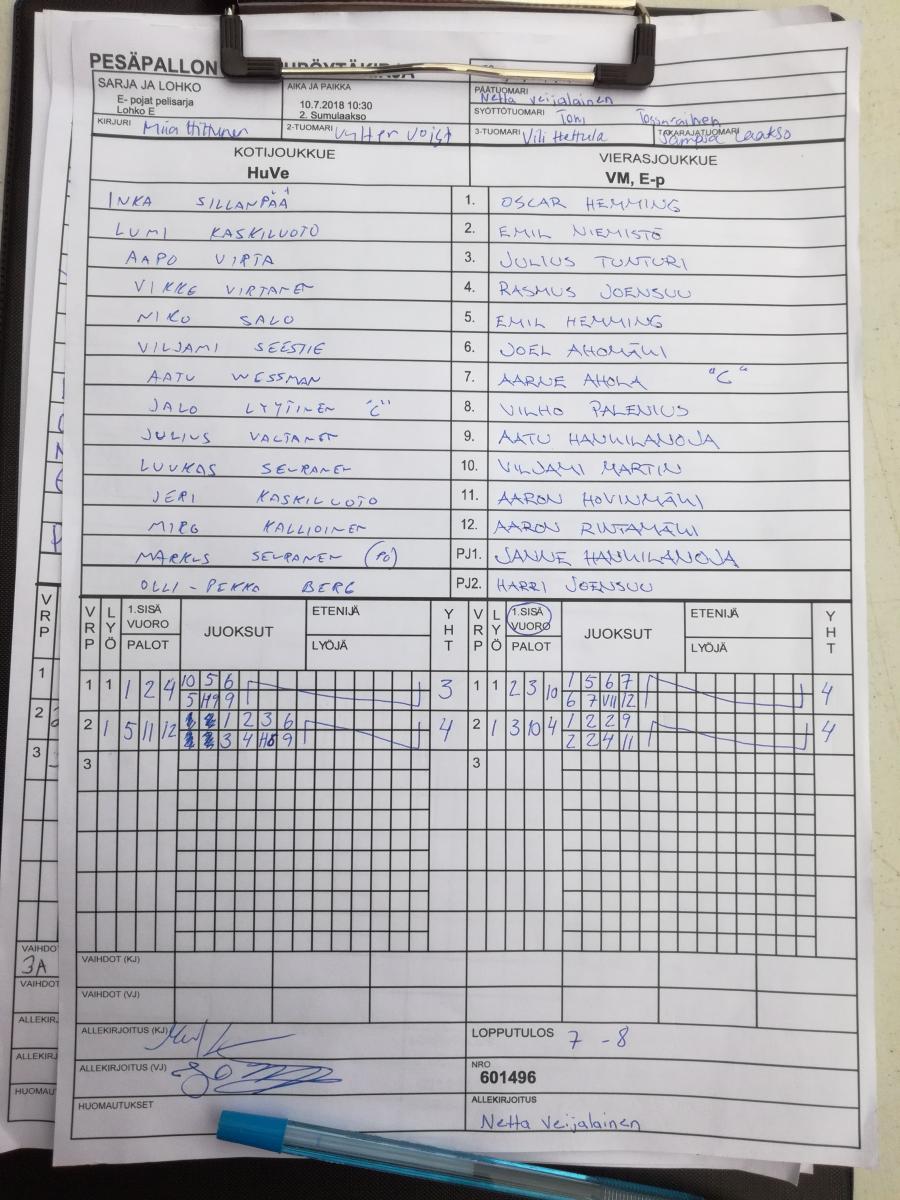 PESÄPALLON
SARJA JA LOHKO
E- pojat pelisarja
Lohko E
AIKA JA PAIKKA
10.7.2018 10:30
2. Sumulaakso
PÄÄTUOMARI
Netta Veijalainen
SYÖTTÖTUOMARI Toni
KIRJURI Miia Hittunen
2-TUOMARI
3-TUOMARI Vili Hettula
TAKARAJATUOMARI Sampsa Laakso
KOTIJOUKKUE VIERASJOUKKUE
HuVe VM, E-p
INKA SILLANPÄÄ 1. OSCAR HEMMING
LUMI KASKILUOTO 2. EMIL NIEMISTÖ
AAPO VIRTA 3. JULIUS TUNTURI
VIKKE VIRTANEN 4. RASMUS JOENSUU
NIKO SALO 5. EMIL HEMMING
VILJAMI SEESTIE 6. JOEL AHOMÄKI
AATU WESSMAN 7. AARNE AHOLA "C"
JALO LYYTINEN "C" 8. VILHO PALENIUS
JULIUS VALTANEN 9. AATU HANKILANOJA
LUUKAS SEURANEN 10. VILJAMI MARTIN
JERI KASKILUOTO 11. AARON HOVINMÄKI
MIRO KALLIOINEN 12. AARON RINTAMÄKI
MARKUS SEURANEN (PÖ) PJ1. JANNE HANKILANOJA
OLLI-PEKKA BERG PJ2. HARRI JOENSUU
VRP LYÖ 1.SISÄ VUORO PALOT JUOKSUT ETENIJÄ LYÖJÄ YHT VRP LYÖ 1.SISÄ VUORO PALOT JUOKSUT ETENIJÄ LYÖJÄ YHT
1 1 1 2 4 10 5 6 3 1 1 2 3 10 1 5 6 7 4
5 H9 9 6 7 VII 12
2 1 5 11 12 1 2 3 6 4 2 1 3 10 4 1 2 2 9 4
3 4 H5 9 2 2 4 11
3 3
VAIHDOT (KJ)
VAIHDOT (VJ)
ALLEKIRJOITUS (KJ) LOPPUTULOS 7 - 8
ALLEKIRJOITUS (VJ) NRO
601496
HUOMAUTUKSET ALLEKIRJOITUS
Netta Veijalainen
VRP
1
2
3
VAIHDO
3A
VAIHDOT
ALLEKIR
ALLEKIRJ
HUOMAUT